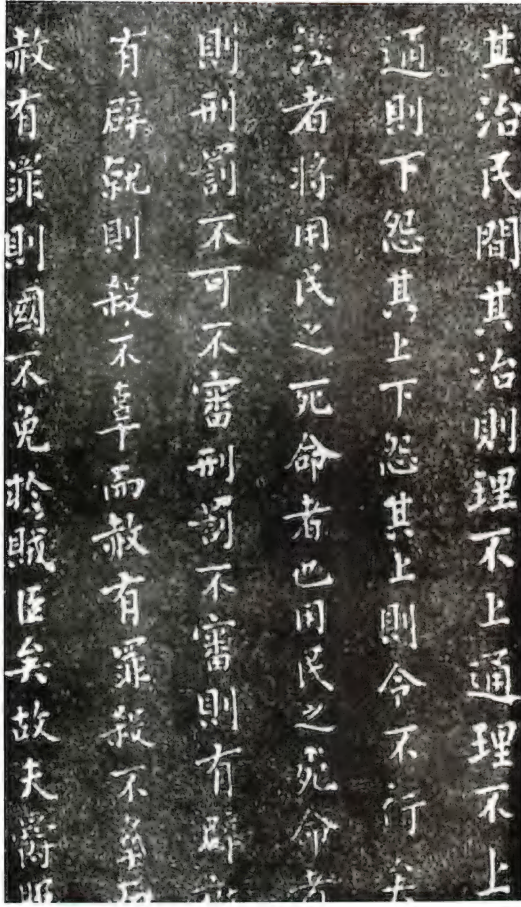 其治民間其治則理不上通理不上
通則下怨其上下怨其上則令不行矣
法者將用民之死命者也用民之死命者
則刑罰不可不審刑罰不審則有辟
有辟就則殺不辜而赦有罪殺不辜而
赦有罪則國不免於賊臣矣故夫爵服